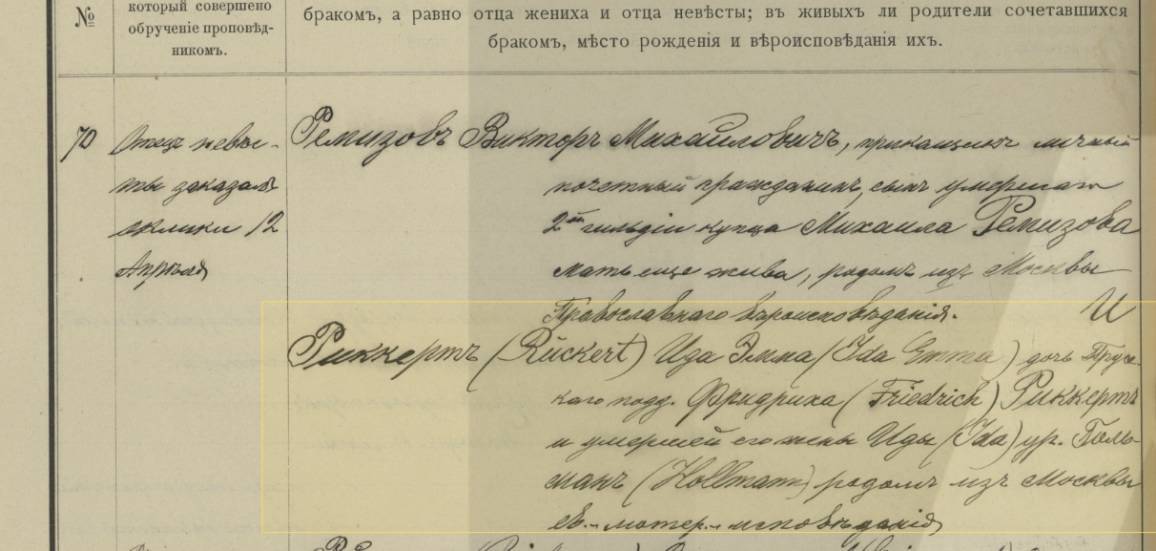 №
который совершено
обрученіе проповѣд-
никомъ.
бракомъ, а равно отца жениха и отца невѣсты; въ живыхъ ли родители сочетавшихся
бракомъ, мѣсто рожденія и вѣроисповѣданія ихъ.
70
Отецъ невѣс-
ты заказалъ
оклики 12
Апрѣля
Ремизовъ Викторъ Михайловичъ, приказщикъ личный
почетный гражданинъ, сынъ умершаго
2ой гильдіи купца Михаила Ремизова
мать еще жива, родомъ изъ Москвы
Православнаго вѣроисповѣданія. И
Риккертъ (Rückert) Ида Эмма (Ida Emma) дочь Прус-
каго подд. Фридриха (Friedrich) Риккертъ
и умершей его жены Иды (Ida) ур. Голь-
манъ (Hollmann) родомъ изъ Москвы
ев.-лютер.-исповѣданія